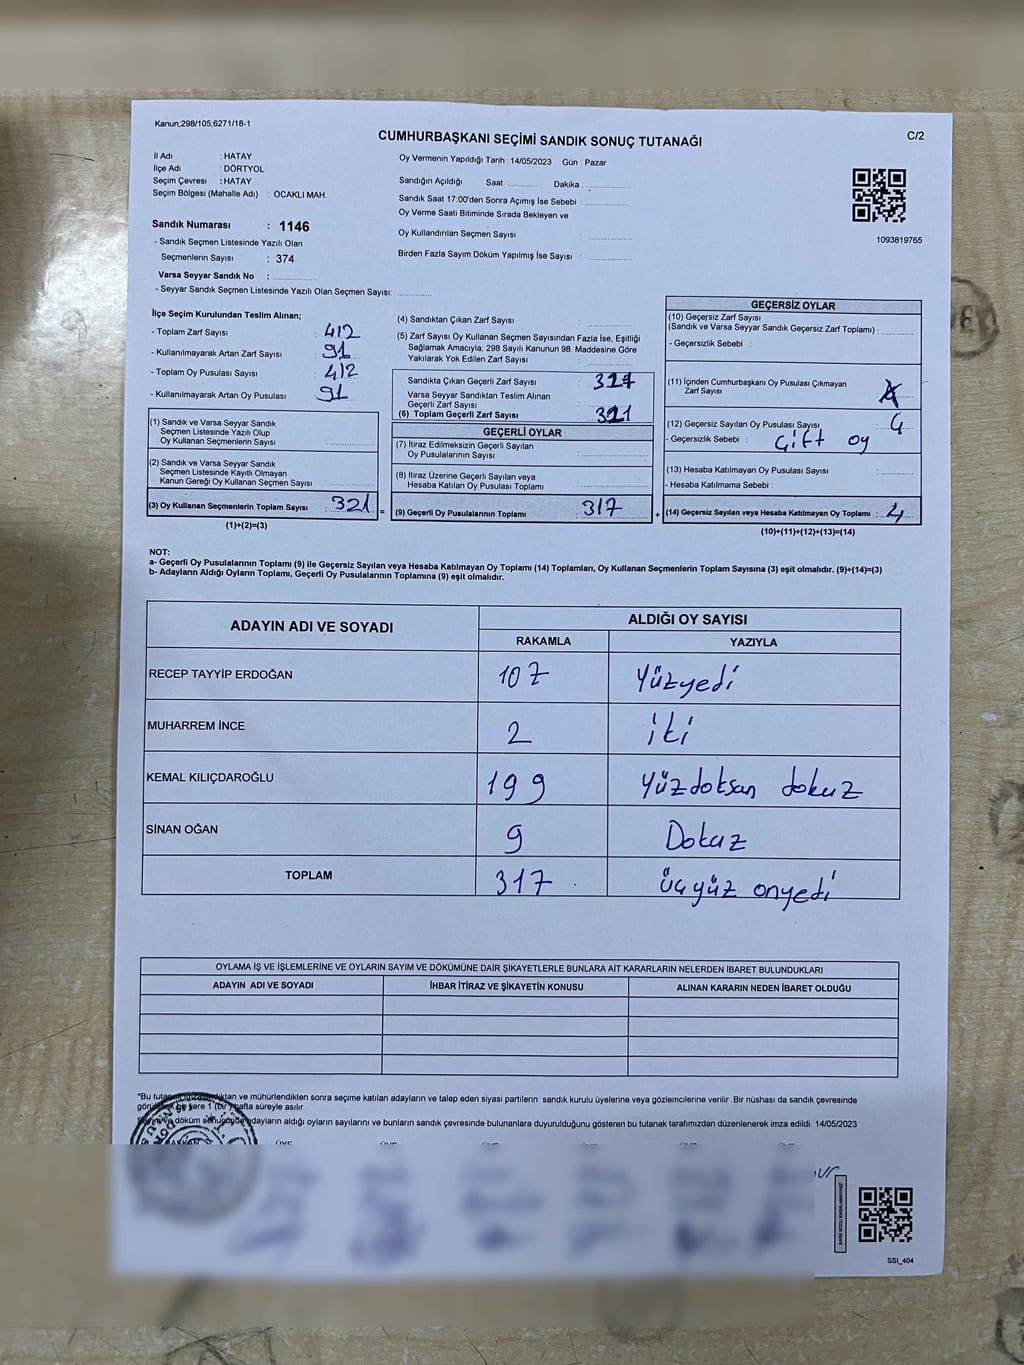 Kanun;298/105,6271/18-1
C/2
CUMHURBAŞKANI SEÇİMİ SANDIK SONUÇ TUTANAĞI
İl Adı : HATAY
İlçe Adı : DÖRTYOL
Seçim Çevresi : HATAY
Seçim Bölgesi (Mahalle Adı) : OCAKLI MAH.
Sandık Numarası : 1146
- Sandık Seçmen Listesinde Yazılı Olan
Seçmenlerin Sayısı : 374
Varsa Seyyar Sandık No :
- Seyyar Sandık Seçmen Listesinde Yazılı Olan Seçmen Sayısı:
Oy Vermenin Yapıldığı Tarih : 14/05/2023 Gün : Pazar
Sandığın Açıldığı Saat : Dakika :
Sandık Saat 17:00'den Sonra Açımış İse Sebebi :
Oy Verme Saati Bitiminde Sırada Bekleyen ve
Oy Kullandırılan Seçmen Sayısı :
Birden Fazla Sayım Döküm Yapılmış İse Sayısı :
1093819765
İlçe Seçim Kurulundan Teslim Alınan;
- Toplam Zarf Sayısı : 412
- Kullanılmayarak Artan Zarf Sayısı : 91
- Toplam Oy Pusulası Sayısı : 412
- Kullanılmayarak Artan Oy Pusulası : 91
(1) Sandık ve Varsa Seyyar Sandık
Seçmen Listesinde Yazılı Olup
Oy Kullanan Seçmenlerin Sayısı :
(2) Sandık ve Varsa Seyyar Sandık
Seçmen Listesinde Kayıtlı Olmayan
Kanun Gereği Oy Kullanan Seçmen Sayısı :
(3) Oy Kullanan Seçmenlerin Toplam Sayısı : 321 =
(1)+(2)=(3)
(4) Sandıktan Çıkan Zarf Sayısı :
(5) Zarf Sayısı Oy Kullanan Seçmen Sayısından Fazla İse, Eşitliği
Sağlamak Amacıyla, 298 Sayılı Kanunun 98. Maddesine Göre
Yakılarak Yok Edilen Zarf Sayısı :
Sandıkta Çıkan Geçerli Zarf Sayısı :
Varsa Seyyar Sandıktan Teslim Alınan
Geçerli Zarf Sayısı :
(6) Toplam Geçerli Zarf Sayısı : 321
GEÇERLİ OYLAR
(7) İtiraz Edilmeksizin Geçerli Sayılan
Oy Pusulalarının Sayısı :
(8) İtiraz Üzerine Geçerli Sayılan veya
Hesaba Katılan Oy Pusulası Toplamı :
(9) Geçerli Oy Pusulalarının Toplamı : 317 +
GEÇERSİZ OYLAR
(10) Geçersiz Zarf Sayısı
(Sandık ve Varsa Seyyar Sandık Geçersiz Zarf Toplamı) :
- Geçersizlik Sebebi :
(11) İçinden Cumhurbaşkanı Oy Pusulası Çıkmayan
Zarf Sayısı :
(12) Geçersiz Sayılan Oy Pusulası Sayısı : 4
- Geçersizlik Sebebi : Çift oy
(13) Hesaba Katılmayan Oy Pusulası Sayısı :
- Hesaba Katılmama Sebebi :
(14) Geçersiz Sayılan veya Hesaba Katılmayan Oy Toplamı : 4
(10)+(11)+(12)+(13)=(14)
NOT:
a- Geçerli Oy Pusulalarının Toplamı (9) ile Geçersiz Sayılan veya Hesaba Katılmayan Oy Toplamı (14) Toplamları, Oy Kullanan Seçmenlerin Toplam Sayısına (3) eşit olmalıdır. (9)+(14)=(3)
b- Adayların Aldığı Oyların Toplamı, Geçerli Oy Pusulalarının Toplamına (9) eşit olmalıdır.
ADAYIN ADI VE SOYADI ALDIĞI OY SAYISI
RAKAMLA YAZIYLA
RECEP TAYYİP ERDOĞAN 107 Yüzyedi
MUHARREM İNCE 2 iki
KEMAL KILIÇDAROĞLU 199 Yüzdoksan dokuz
SİNAN OĞAN 9 Dokuz
TOPLAM 317 üçyüz onyedi
OYLAMA İŞ VE İŞLEMLERİNE VE OYLARIN SAYIM VE DÖKÜMÜNE DAİR ŞİKAYETLERLE BUNLARA AİT KARARLARIN NELERDEN İBARET BULUNDUKLARI
ADAYIN ADI VE SOYADI İHBAR İTİRAZ VE ŞİKAYETİN KONUSU ALINAN KARARIN NEDEN İBARET OLDUĞU
*Bu ve mühürlendikten sonra seçime katılan adayların ve talep eden siyasi partilerin sandık kurulu üyelerine veya gözlemcilerine verilir. Bir nüshası da sandık çevresinde
yere 1 (bir) hafta süreyle asılır.
ve döküm adayların aldığı oyların sayılarını ve bunların sandık çevresinde bulunanlara duyurulduğunu gösteren bu tutanak tarafımızdan düzenlenerek imza edildi. 14/05/2023
SSI_404